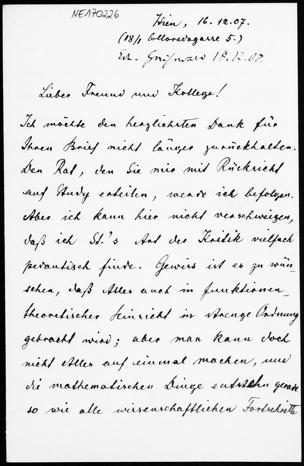 NE170226
Wien, 16.12.07.
(18/1 Cottagegasse 5.)
Erh. Greifswald 18.12.07.
Lieber Freund und Kollege!
Ich möchte den herzlichsten Dank für
Ihren Brief nicht länger zurückhalten.
Den Rat, den Sie mir mit Rücksicht
auf Study erteilen, werde ich befolgen.
Aber ich kann hier nicht verschweigen,
daß ich St.'s Art der Kritik vielfach
pedantisch finde. Gewiss ist es zu wün-
schen, daß Alles auch in funktionen-
theoretischer Hinsicht in strenge Ordnung
gebracht wird; aber man kann doch
nicht Alles auf einmal machen, und
die mathematischen Dinge entstehn gerade
so wie alle wissenschaftlichen Fortschritte